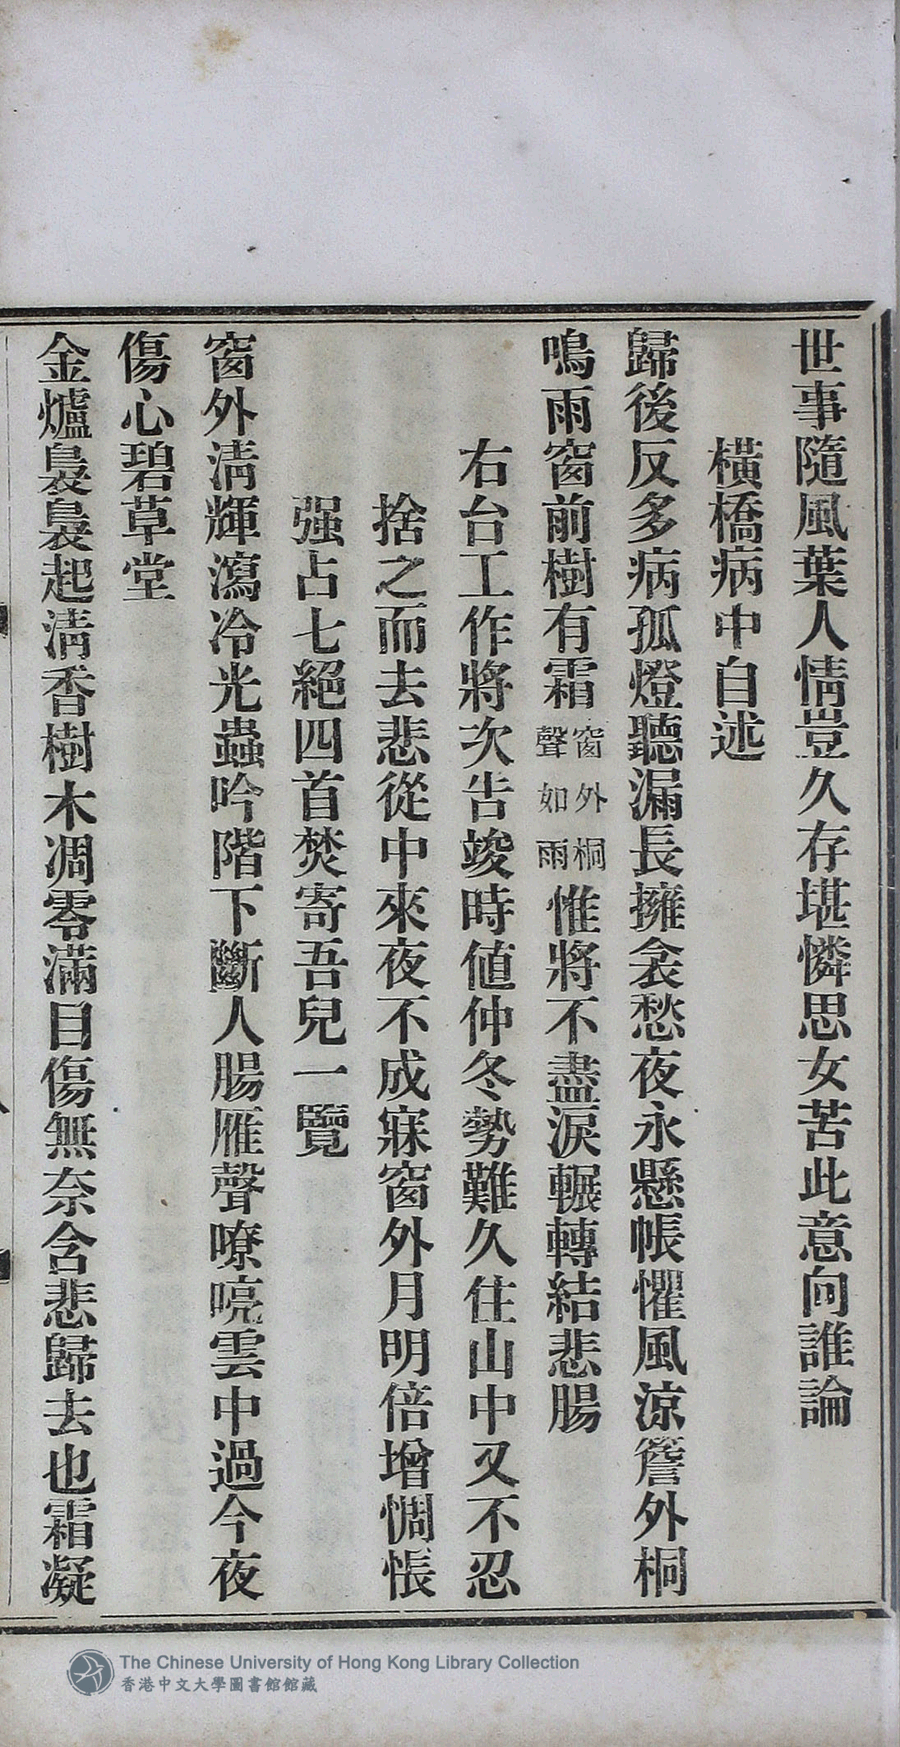 世事隨風葉人情豈久存堪憐思女苦此意向誰論
橫橋病中自述
歸後反多病孤燈聽漏長擁衾愁夜永懸帳懼風涼簷外桐
鳴雨窗前樹有霜窗外桐聲如雨惟將不盡淚輾轉結悲腸
右台工作將次告竣時値仲冬勢難久住山中又不忍
捨之而去悲從中來夜不成寐窗外月明倍增惆悵
强占七絕四首焚寄吾兒一覽
窗外淸輝瀉冷光蟲吟階下斷人腸雁聲嘹喨雲中過今夜
傷心碧草堂
金爐裊裊起淸香樹木凋零滿目傷無奈含悲歸去也霜凝
The Chinese University of Hong Kong Library Collection
香港中文大學圖書館館藏